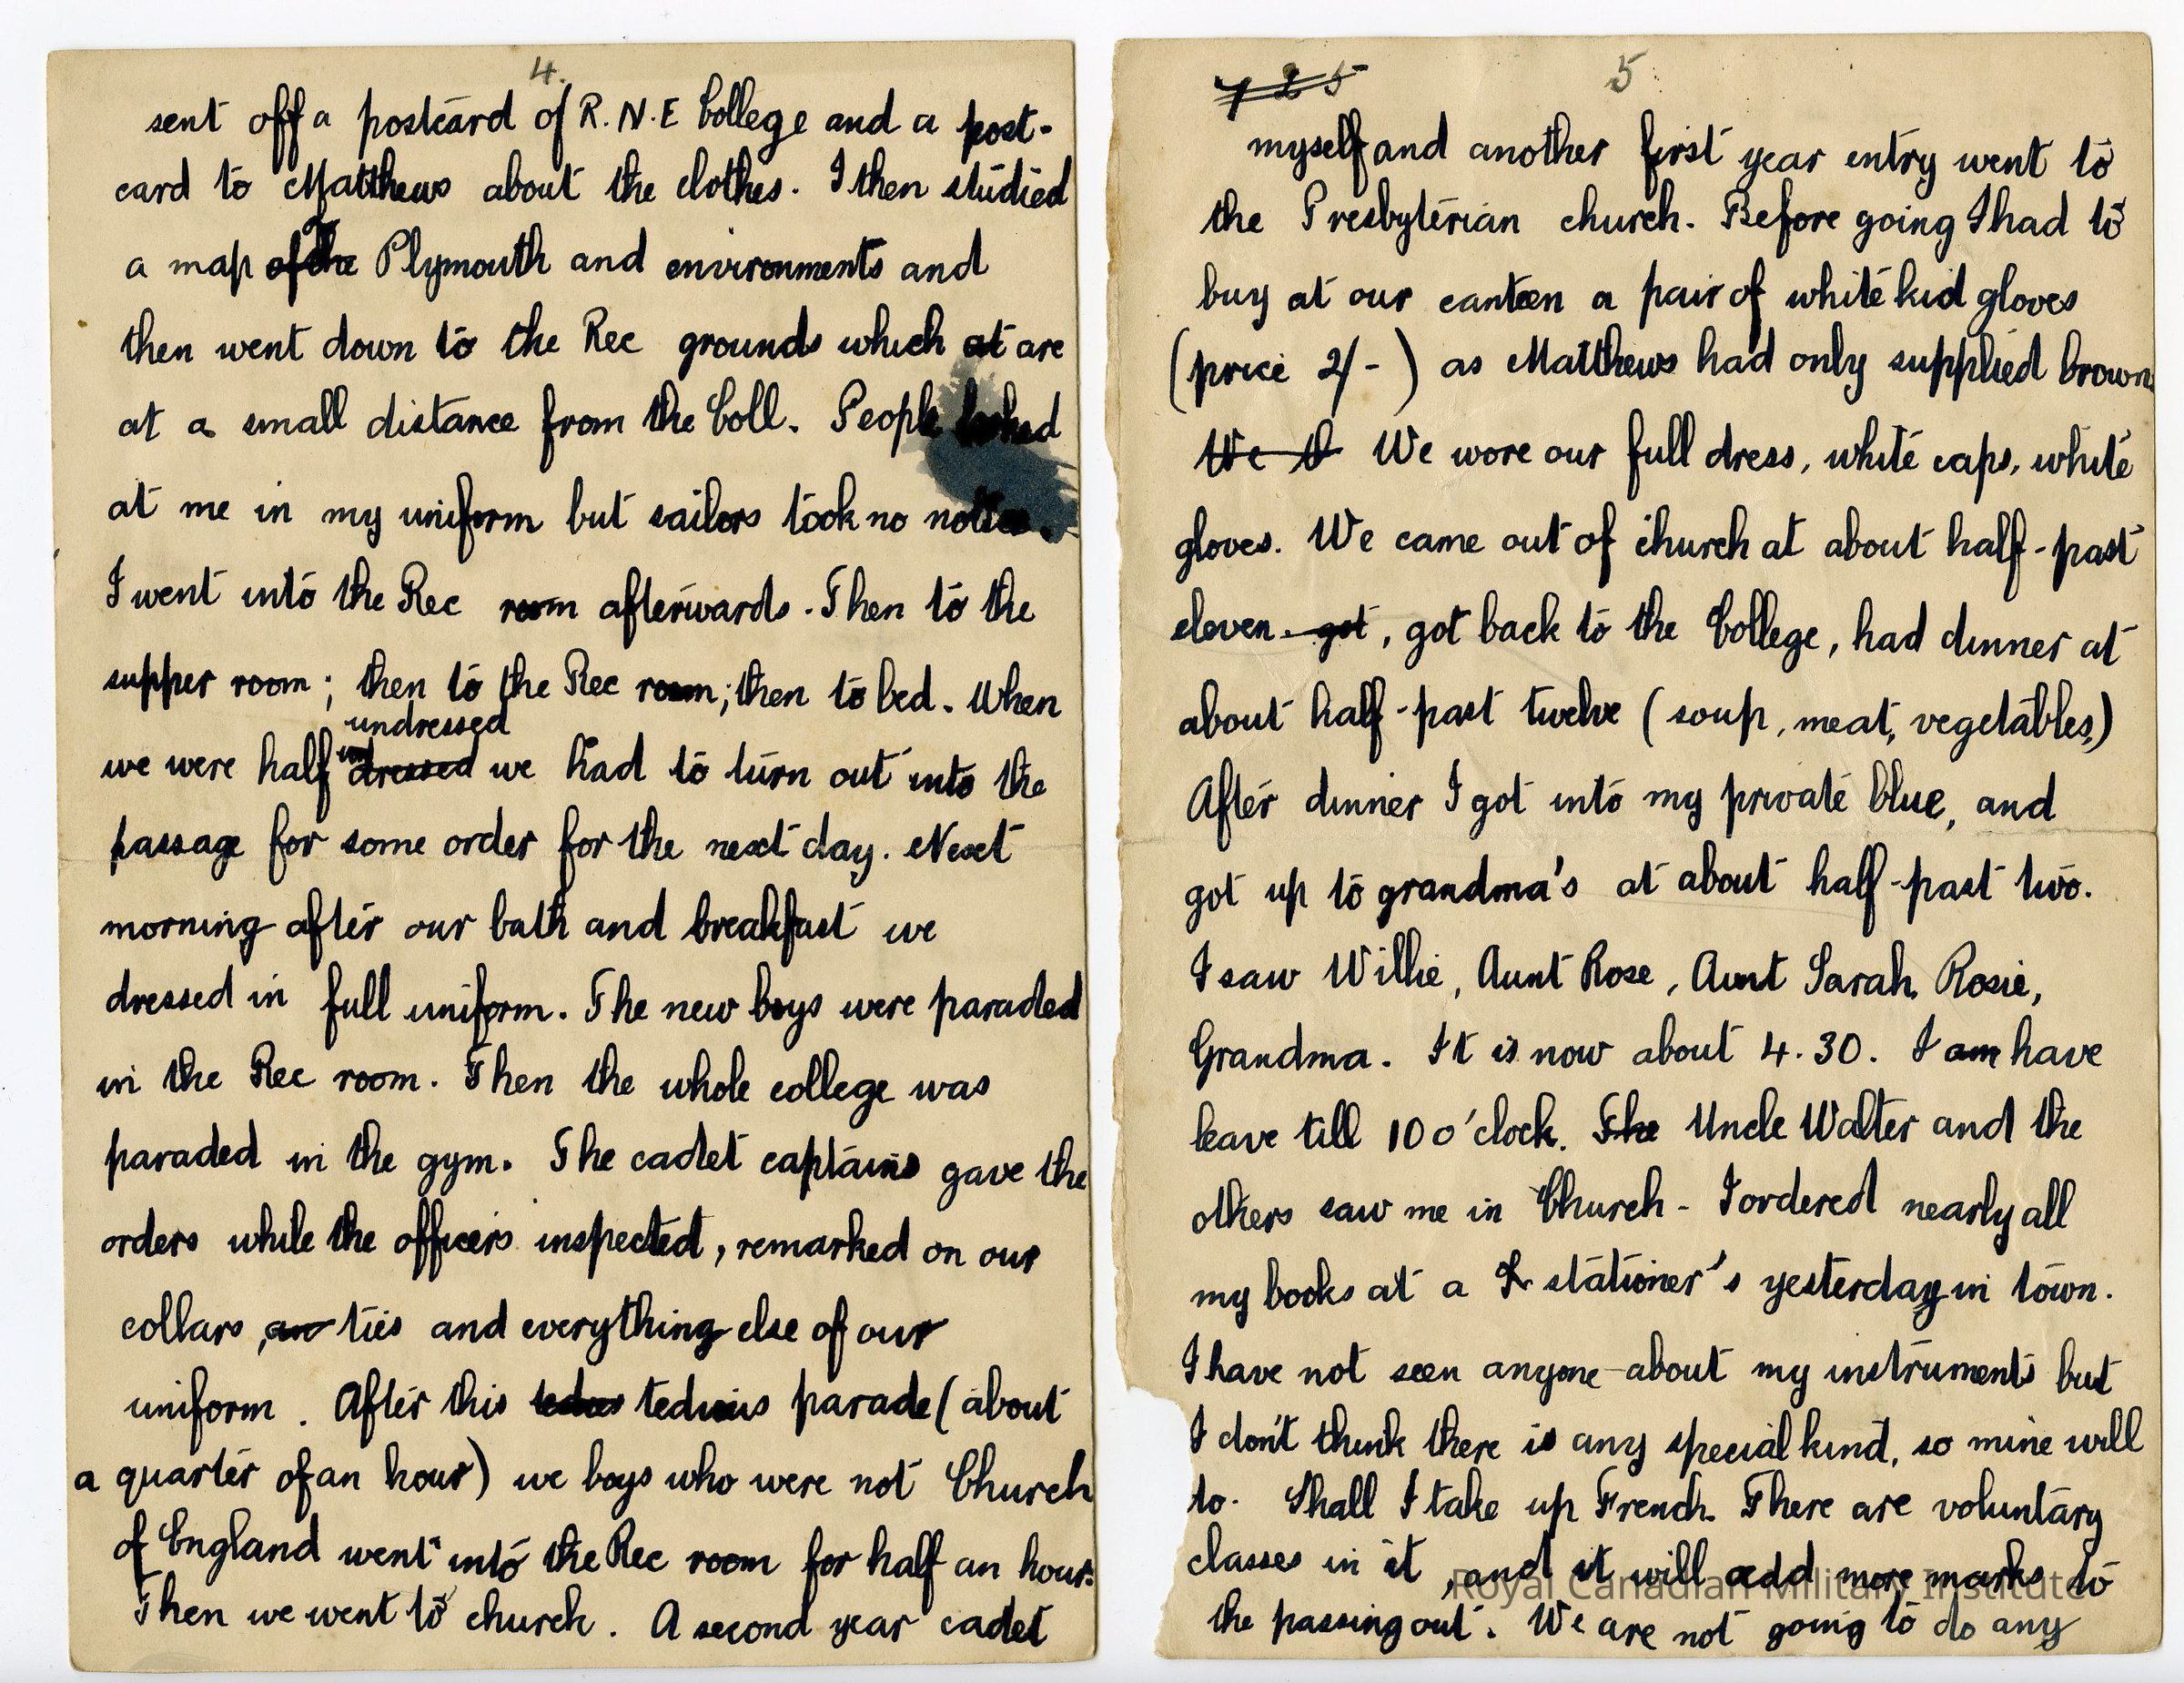 4.
sent off a postcard of R.N.E College and a post-
card to Matthews about the clothes. I then studied
a map of the Plymouth and environments and
then went down to the Rec grounds which at are
at a small distance from the Coll. People looked
at me in my uniform but sailors took no notice.
I went into the Rec room afterwards. Then to the
supper room; then to the Rec room; then to bed. When
undressed
we were half undressed we had to turn out into the
passage for some order for the next day. Next
morning after our bath and breakfast we
dressed in full uniform. The new boys were paraded
in the Rec room. Then the whole college was
paraded in the gym. The cadet captains gave the
orders while the officers inspected, remarked on our
collars, an ties and everything else of our
uniform. After this tedius parade (about
a quarter of an hour) we boys who were not Church
of England went into the Rec room for half an hour.
Then we went to church. A second year cadet
5
myself and another first year entry went to
the Presbyterian church. Before going I had to
buy at our canteen a pair of white kid gloves
(price 2/-) as Matthews had only supplied brown.
We th We wore our full dress, white caps, white
gloves. We came out of church at about half-past
eleven. got, got back to the College, had dinner at
about half-past twelve (soup, meat, vegetables,)
After dinner I got into my private blue, and
got up to grandma's at about half-past two.
I saw Willie, Aunt Rose, Aunt Sarah, Rosie,
Grandma. It is now about 4.30. I am have
leave till 10 o'clock. The Uncle Walter and the
others saw me in Church - I ordered nearly all
my books at a stationer's yesterday in town.
I have not seen anyone about my instruments but
I don't think there is any special kind, so mine will
to. Shall I take up French. There are voluntary
classes in it, and it will add more marks to
the passing out. We are not going to do any
Royal Canadian Military Institute